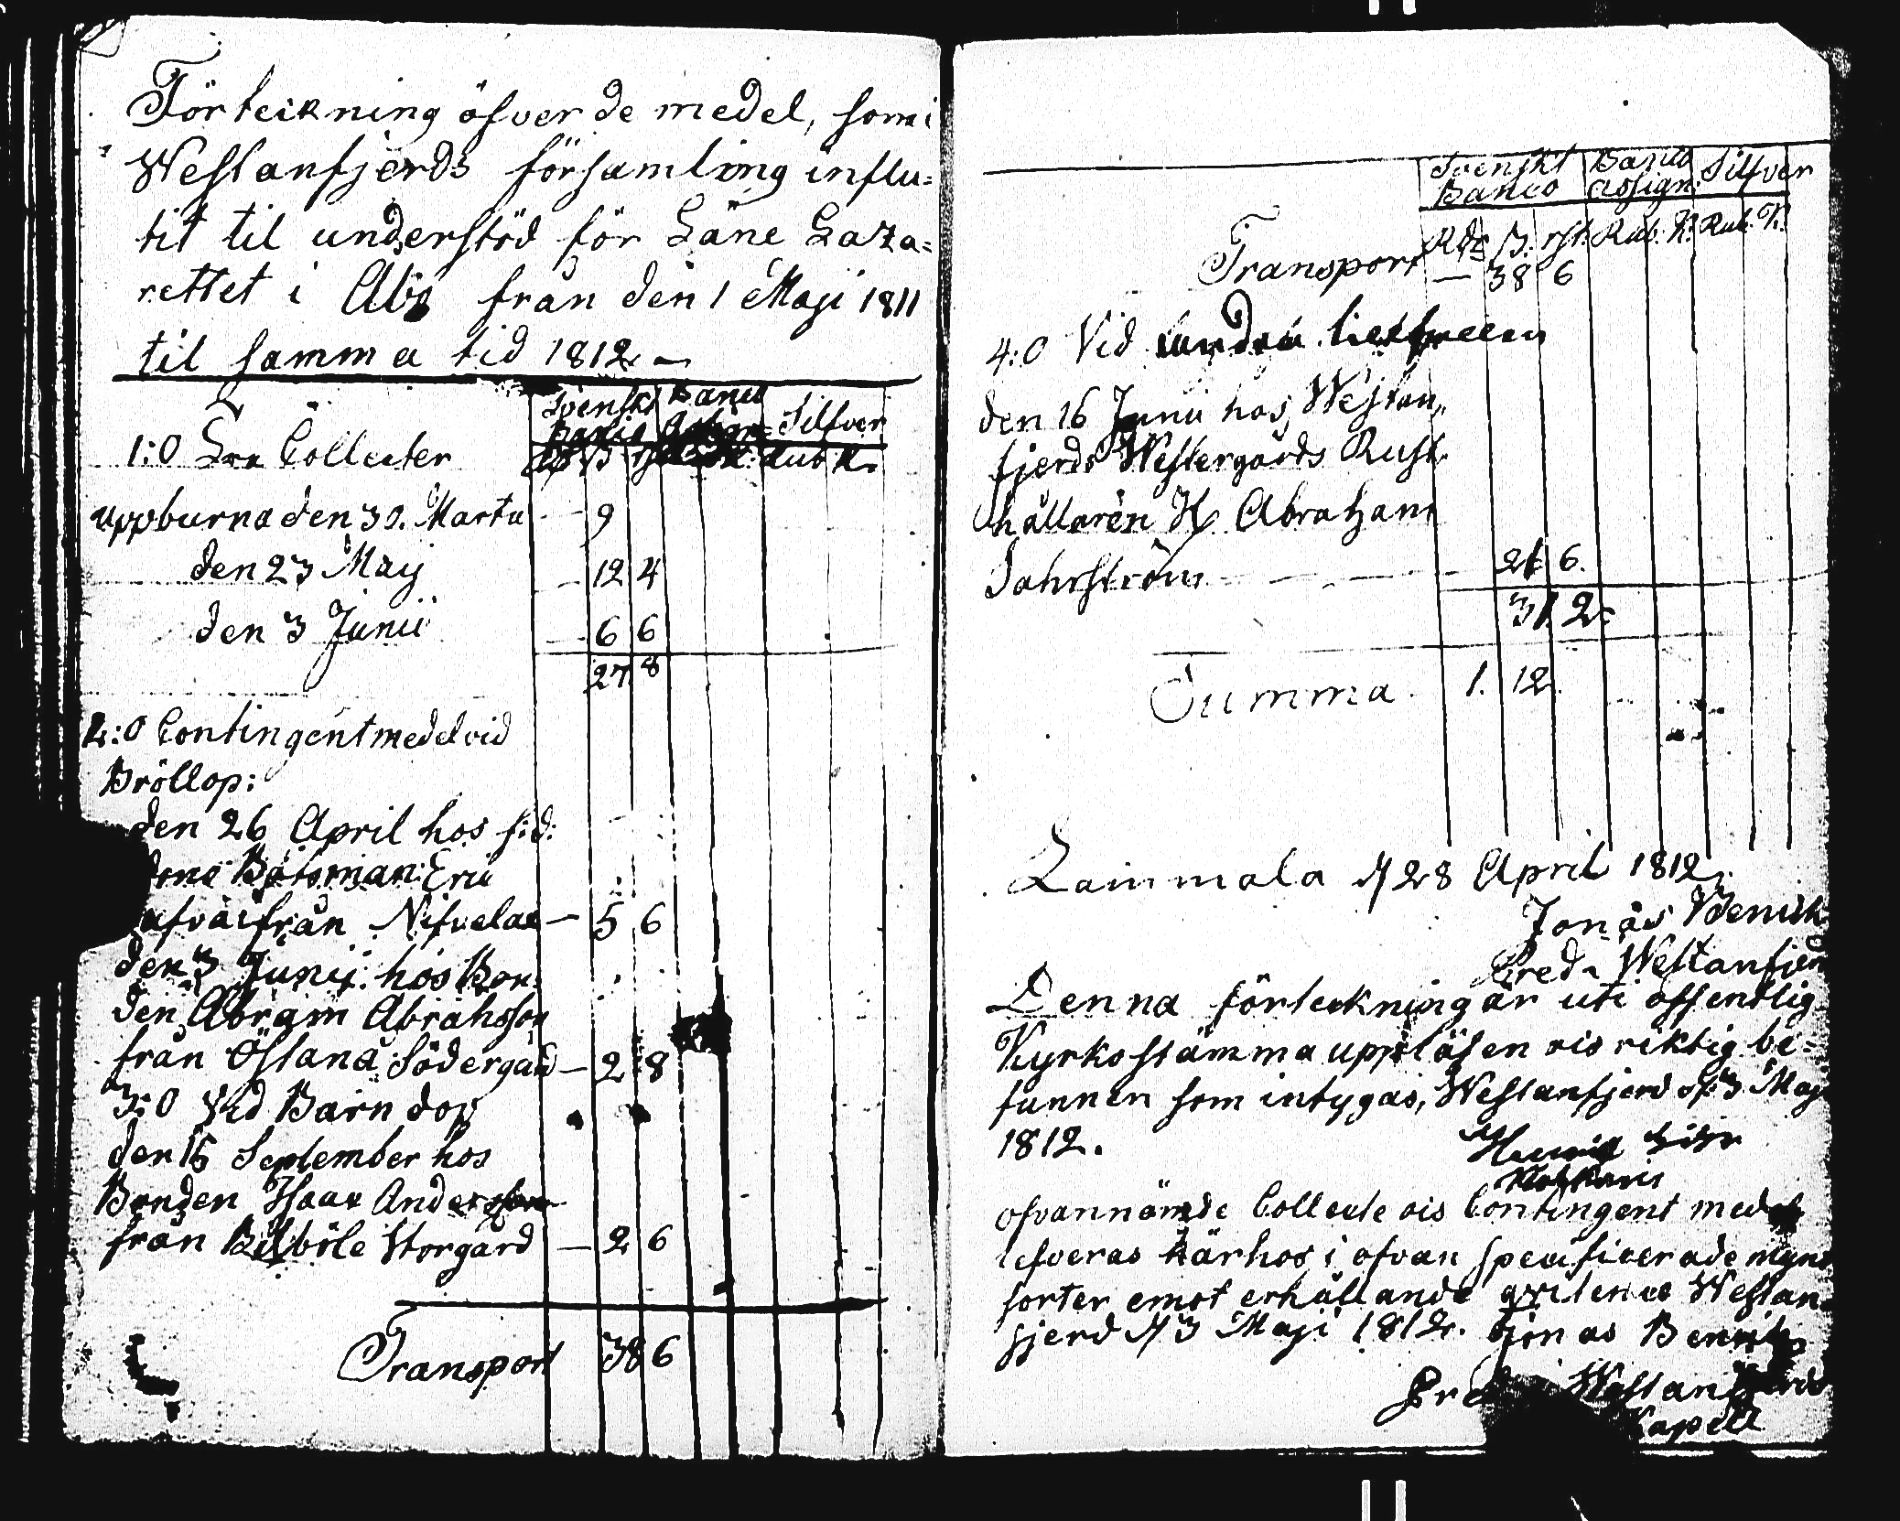 Förteckning öfver de medel, som i
Westanfjerds församling influ=
tit til understöd för Läne Laza=
rettet i Åbo från den 1 Maji 1811
til samma tid 1812.
Svenskt Banco Silfver
1:0 Collecter
uppburna den 30. Martii 9
den 23 Maij 12 4
den 3 Junii 6 6
27 8
2:0 Contingentmedel vid
Bröllop:
den 26 April hos
Båtsman Eric
från Nifvelax — 5 6
den 3 Junii hos Bon=
den Abram Abrahsson
från Östana Södergård — 2 8
3:0 Vid Barndop
den 16 September hos
Bonden Isaac Andersson
från Bilböle Storgård — 2 6
Transport 38 6
Svenskt Banco Silfver
Banco assign.
Rdr ß. rst. Rub. K. Rub. K.
Transport — 38 6
4:0 Vid andra
den 16 Junii hos Westan=
fjerds Westergårds Rust=
hållaren H Abraham
6.
31 2
Summa 1. 12
Lammala d 28 April 1812.
Jonas
Pred. Westanfjerd
Denna förteckning är uti offentlig
Kyrkostämma uppläsen ois riktig be=
funnen som intygas, Westanfjerd d 3 Maji
1812.
ofvannämde Collecte ois Contingent medel
lefveras härhos i ofvan specificerade mynt
sorter emot erhållande qvitence Westan=
fjerd d 3 Maji 1812. Jonas
Westanfjerds
Kapell